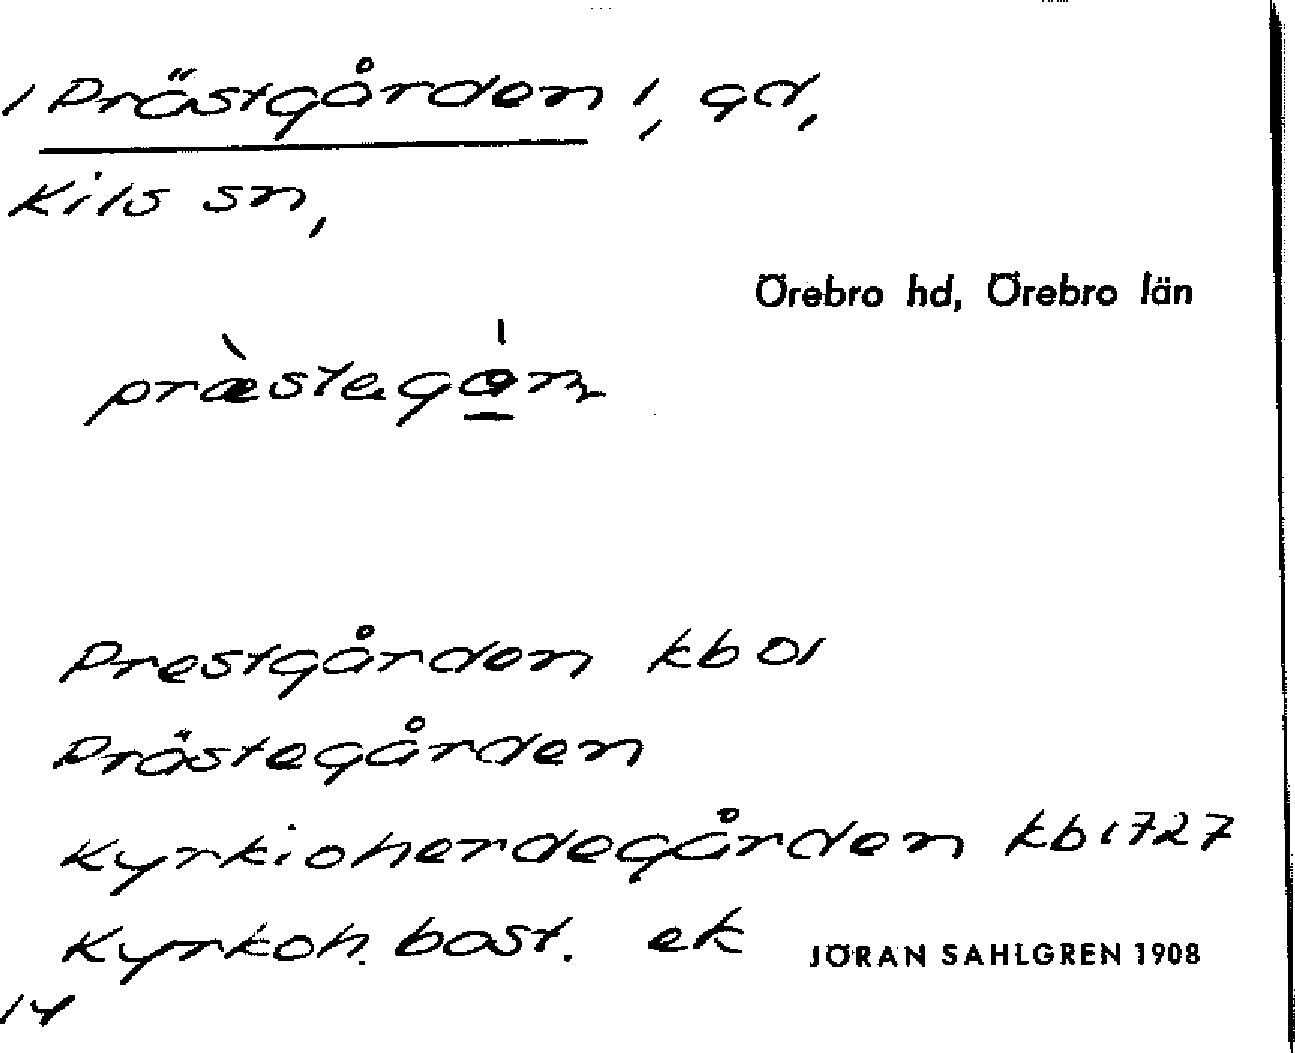 /Prästgården/, gd,
Kils sn,
Örebro hd, Örebro län
Prestgården kb 01
Prästegården
Kyrkioherdegården kb 1727
Kyrkoh. bost. ek
JÖRAN SAHLGREN 1908
14